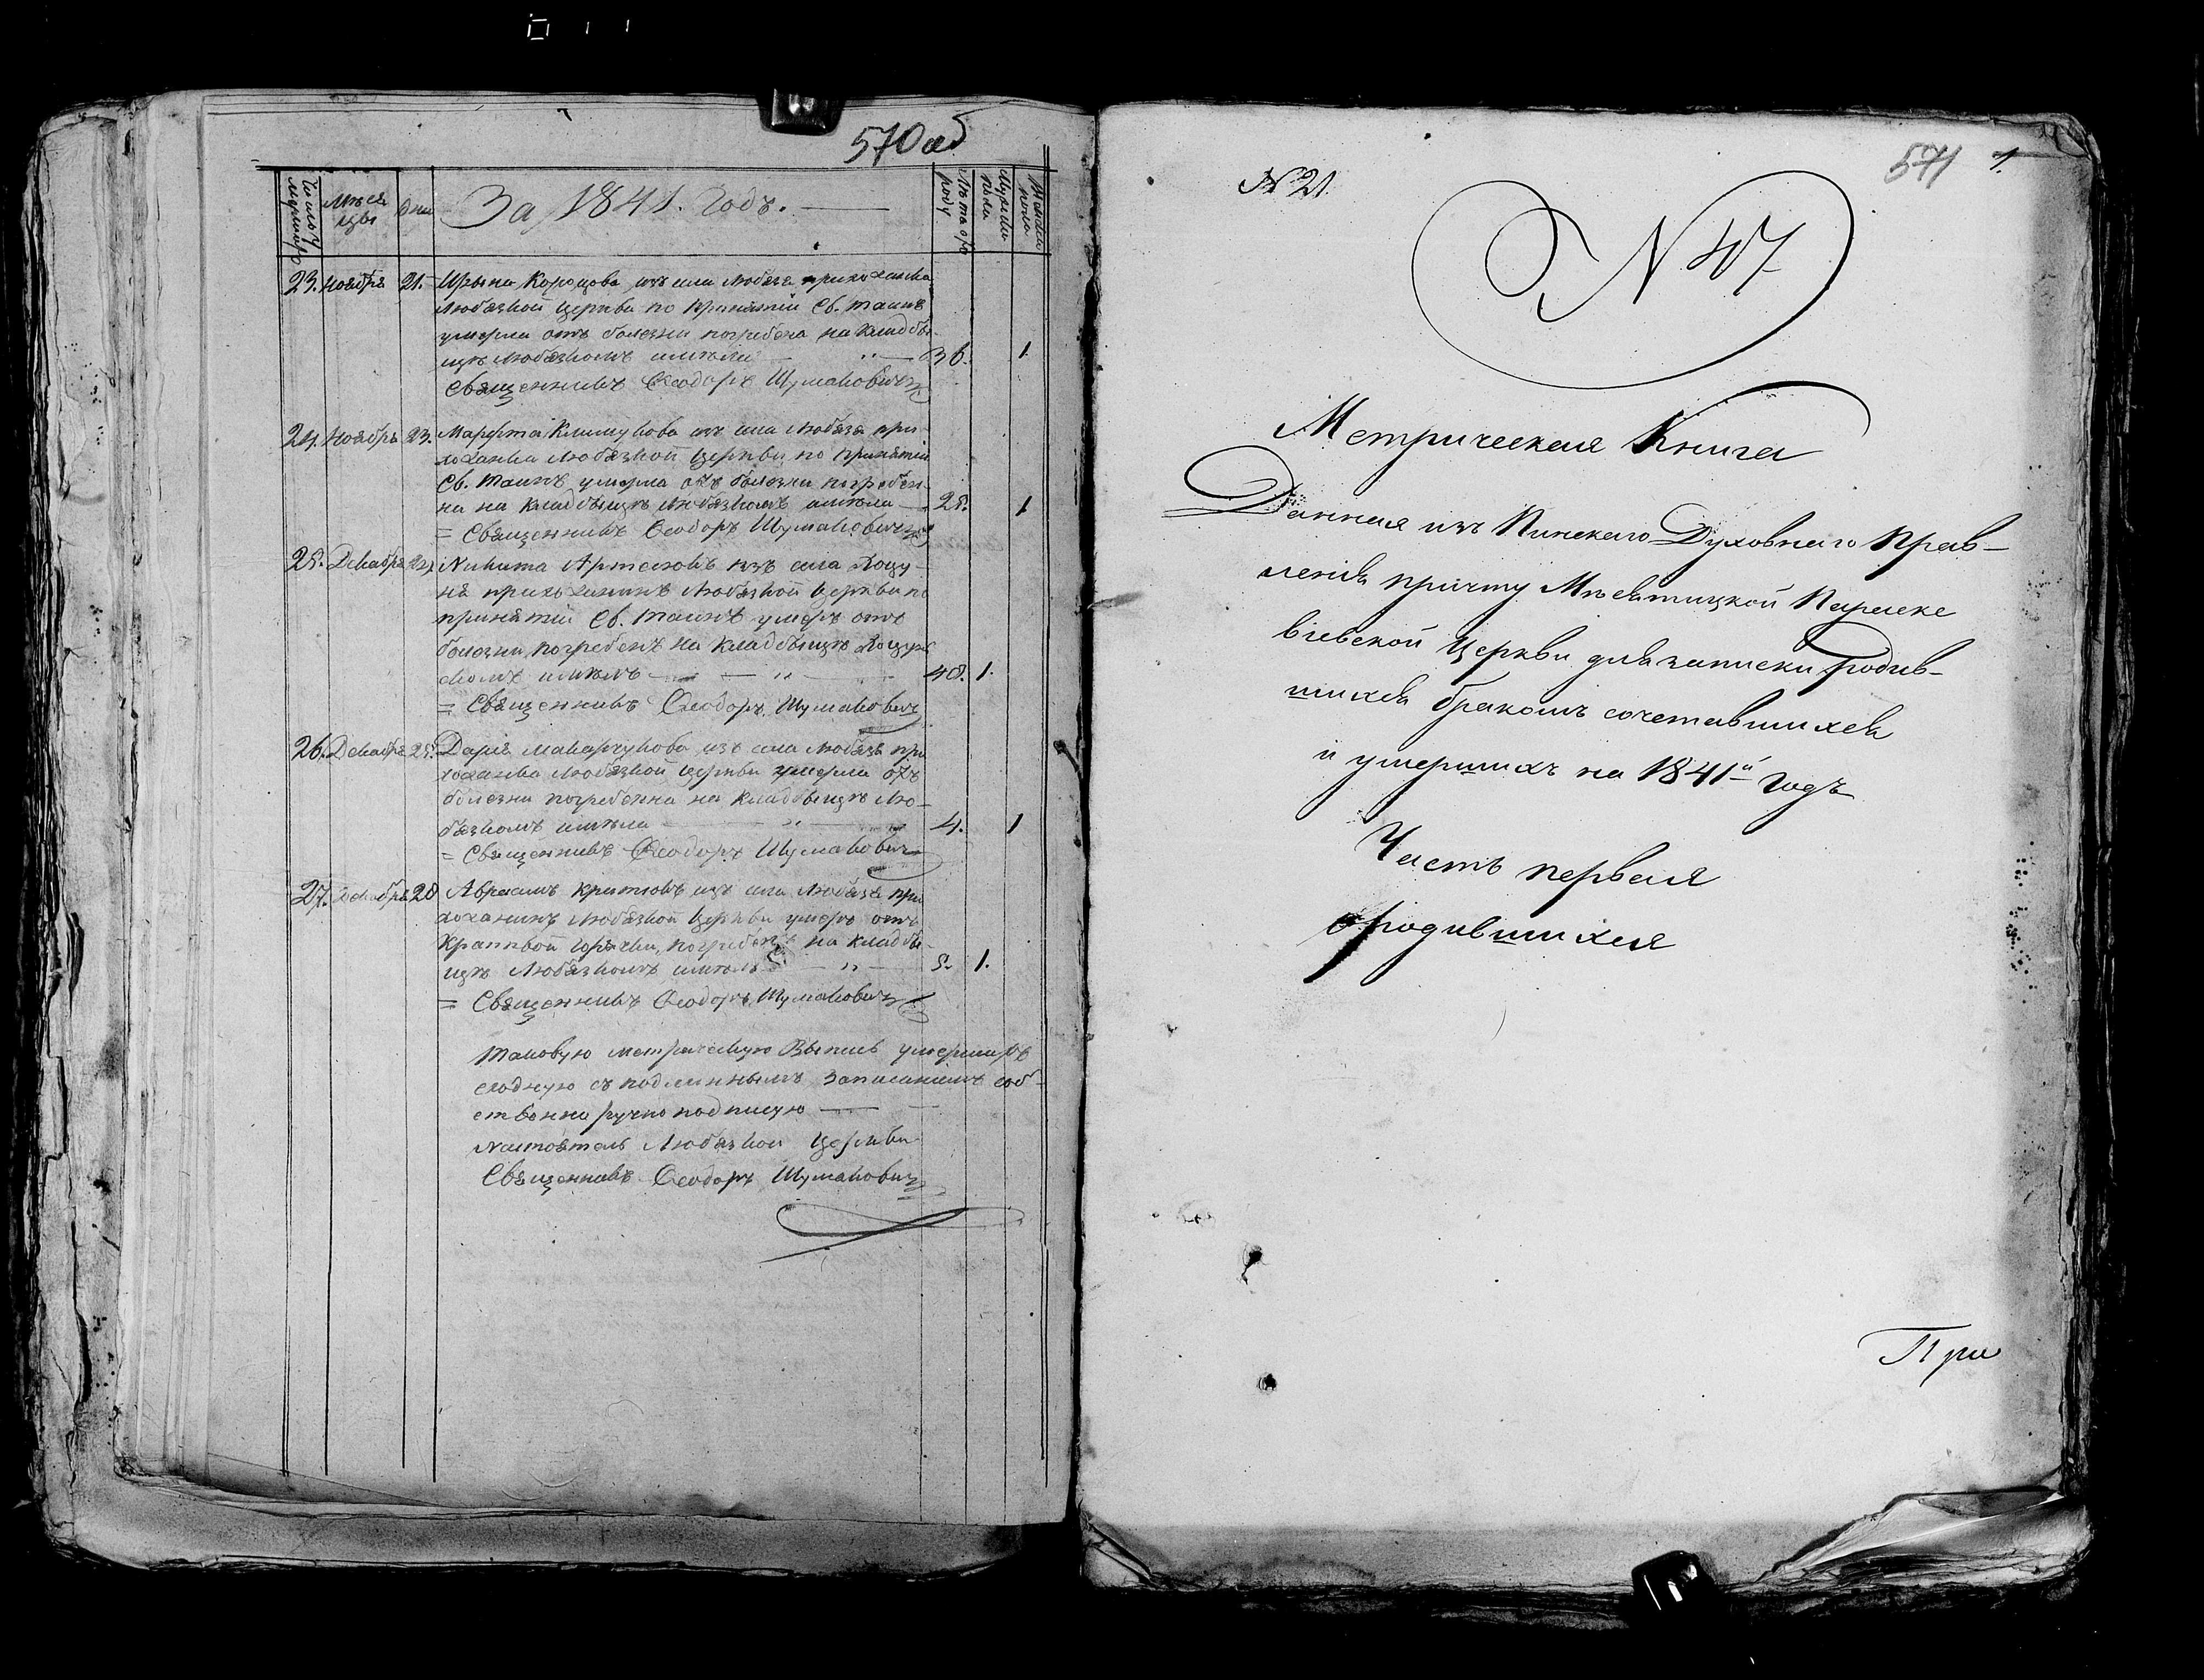 570 об
Число умершихъ
Месяцы
Дни
За 1841. Годъ.
Лета отъ роду
Мужеска пола
Женска пола
23. Ноября 21. Ирына из села Любязя прихожанка
Любязкой Церкви по принятіи Св. Таинъ
умерла отъ болезни погребена на кладбы-
щѣ Любязкомъ имѣла 36. 1
Священникъ Ѳеодоръ Шумаковичъ
24. Ноября 23. Марфа Климукова изъ села Любязя при
хожанка Любязкой Церкви по принятіи
Св. Таинъ умерла отъ болезни погребен-
на на кладбыщѣ Любязкомъ имѣла 28. 1
= Священникъ Ѳеодоръ Шумаковичъ
25. Декабря 24. Никита Артемовъ изъ села Доцу-
ня прихожанинъ Любязкой Церкви по
принятіи Св. Таинъ умеръ отъ
болезни, погребенъ на кладбыщѣ
скомъ имѣлъ 48. 1.
= Священникъ Ѳеодоръ Шумаковичъ
26. Декабря 25. Дарія Макарчукова изъ села Любязя при
хожанка Любязкой Церкви умерла отъ
болезни погребенна на кладбыщѣ Лю-
бязкомъ имѣла 4. 1
= Священникъ Ѳеодоръ Шумаковичъ
27. Декабря 28 Авраамъ из села Любязя при
хожанинъ Любязкой Церкви умеръ отъ
горячки, погребенъ на кладбы-
щѣ Любязкомъ имѣлъ 5. 1.
= Священникъ Ѳеодоръ Шумаковичъ
Таковую метрическую Выпись умершихъ
сходную съ подлиннымъ записаніемъ соб-
ственно ручно подписую
Настоятель Любязкой Церкви
Священникъ Ѳеодоръ Шумаковичъ
571 1.
№ 21.
№ 47
Метрическая Книга
Данная изъ Пинскаго Духовнаго Прав-
ленія причту Мнѣвятицкой Параске
віевской Церкви для записки родив-
шихся бракомъ сочетавшихся
и умершихъ на 1841й годъ
Часть первая
о родившихся
При